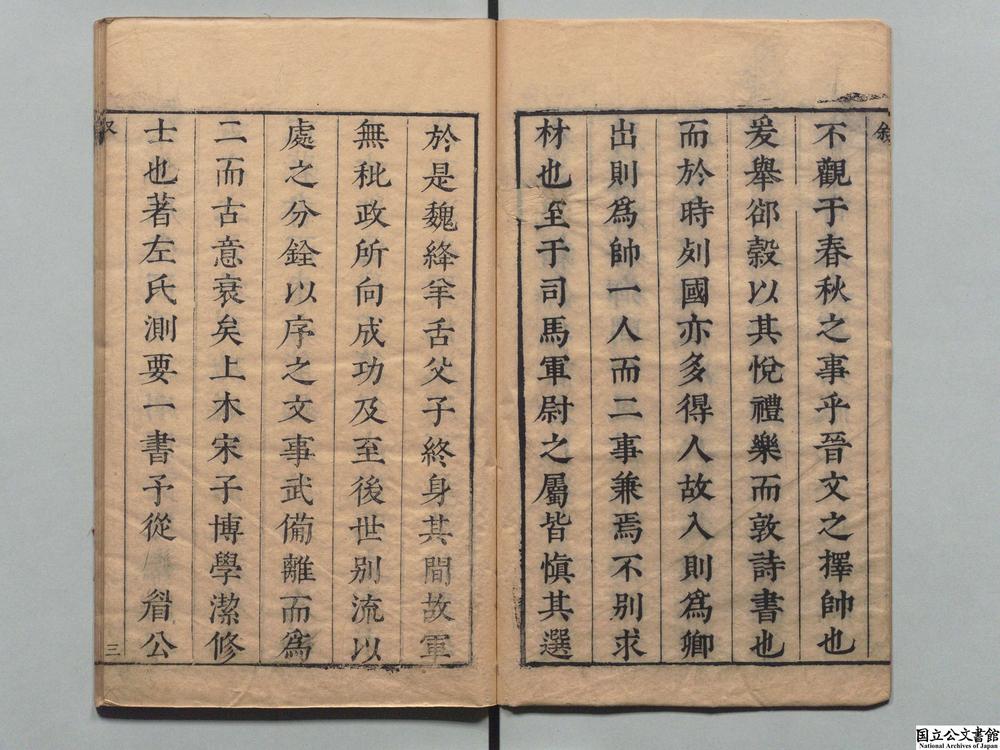 敘
不觀于春秋之事乎晉文之擇帥也
爰舉郤縠以其悅禮樂而敦詩書也
而於時列國亦多得人故入則爲卿
出則爲帥一人而二事兼焉不別求
材也至于司馬軍尉之屬皆慎其選
於是魏絳羊舌父子終身其間故軍
無秕政所向成功及至後世別流以
處之分銓以序之文事武備離而爲
二而古意衰矣上木宋子博學潔修
士也著左氏測要一書予從 眉公
三
国立公文書館
National Archives of Japan